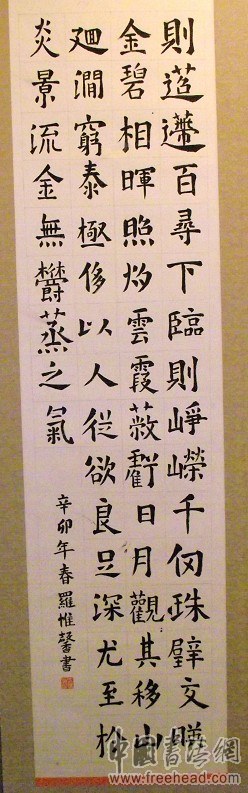 則迢遰百尋下臨則崢嶸千仞珠璧交暎
金碧相暉照灼雲霞蔽虧日月觀其移山
廻澗窮泰極侈以人從欲良足深尤至於
炎景流金無欝蒸之氣
辛卯年春羅惟馨書
中國書法網
www.freehead.com